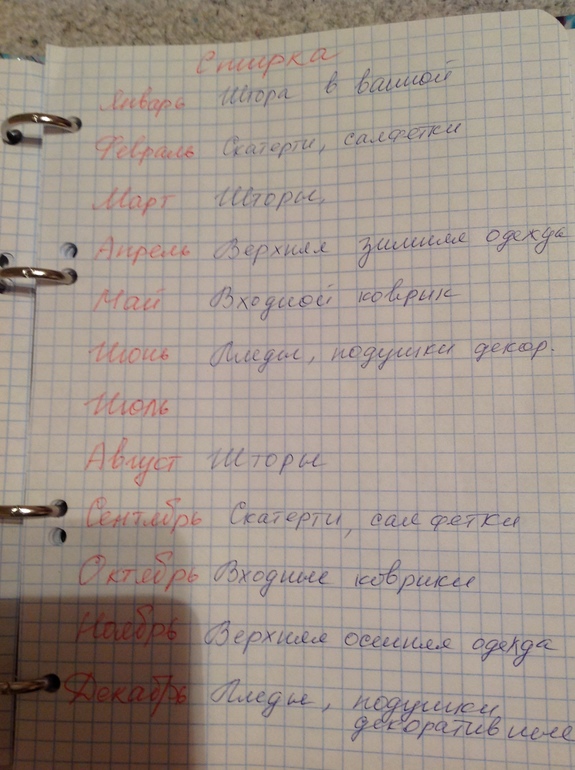 Стирка
Январь Штора в ванной
Февраль Скатерти, салфетки
Март Шторы
Апрель Верхняя зимняя одежда
Май Входной коврик
Июнь Пледы, подушки декор.
Июль
Август Шторы
Сентябрь Скатерти, салфетки
Октябрь Входные коврики
Ноябрь Верхняя осенняя одежда
Декабрь Пледы, подушки
декоративные